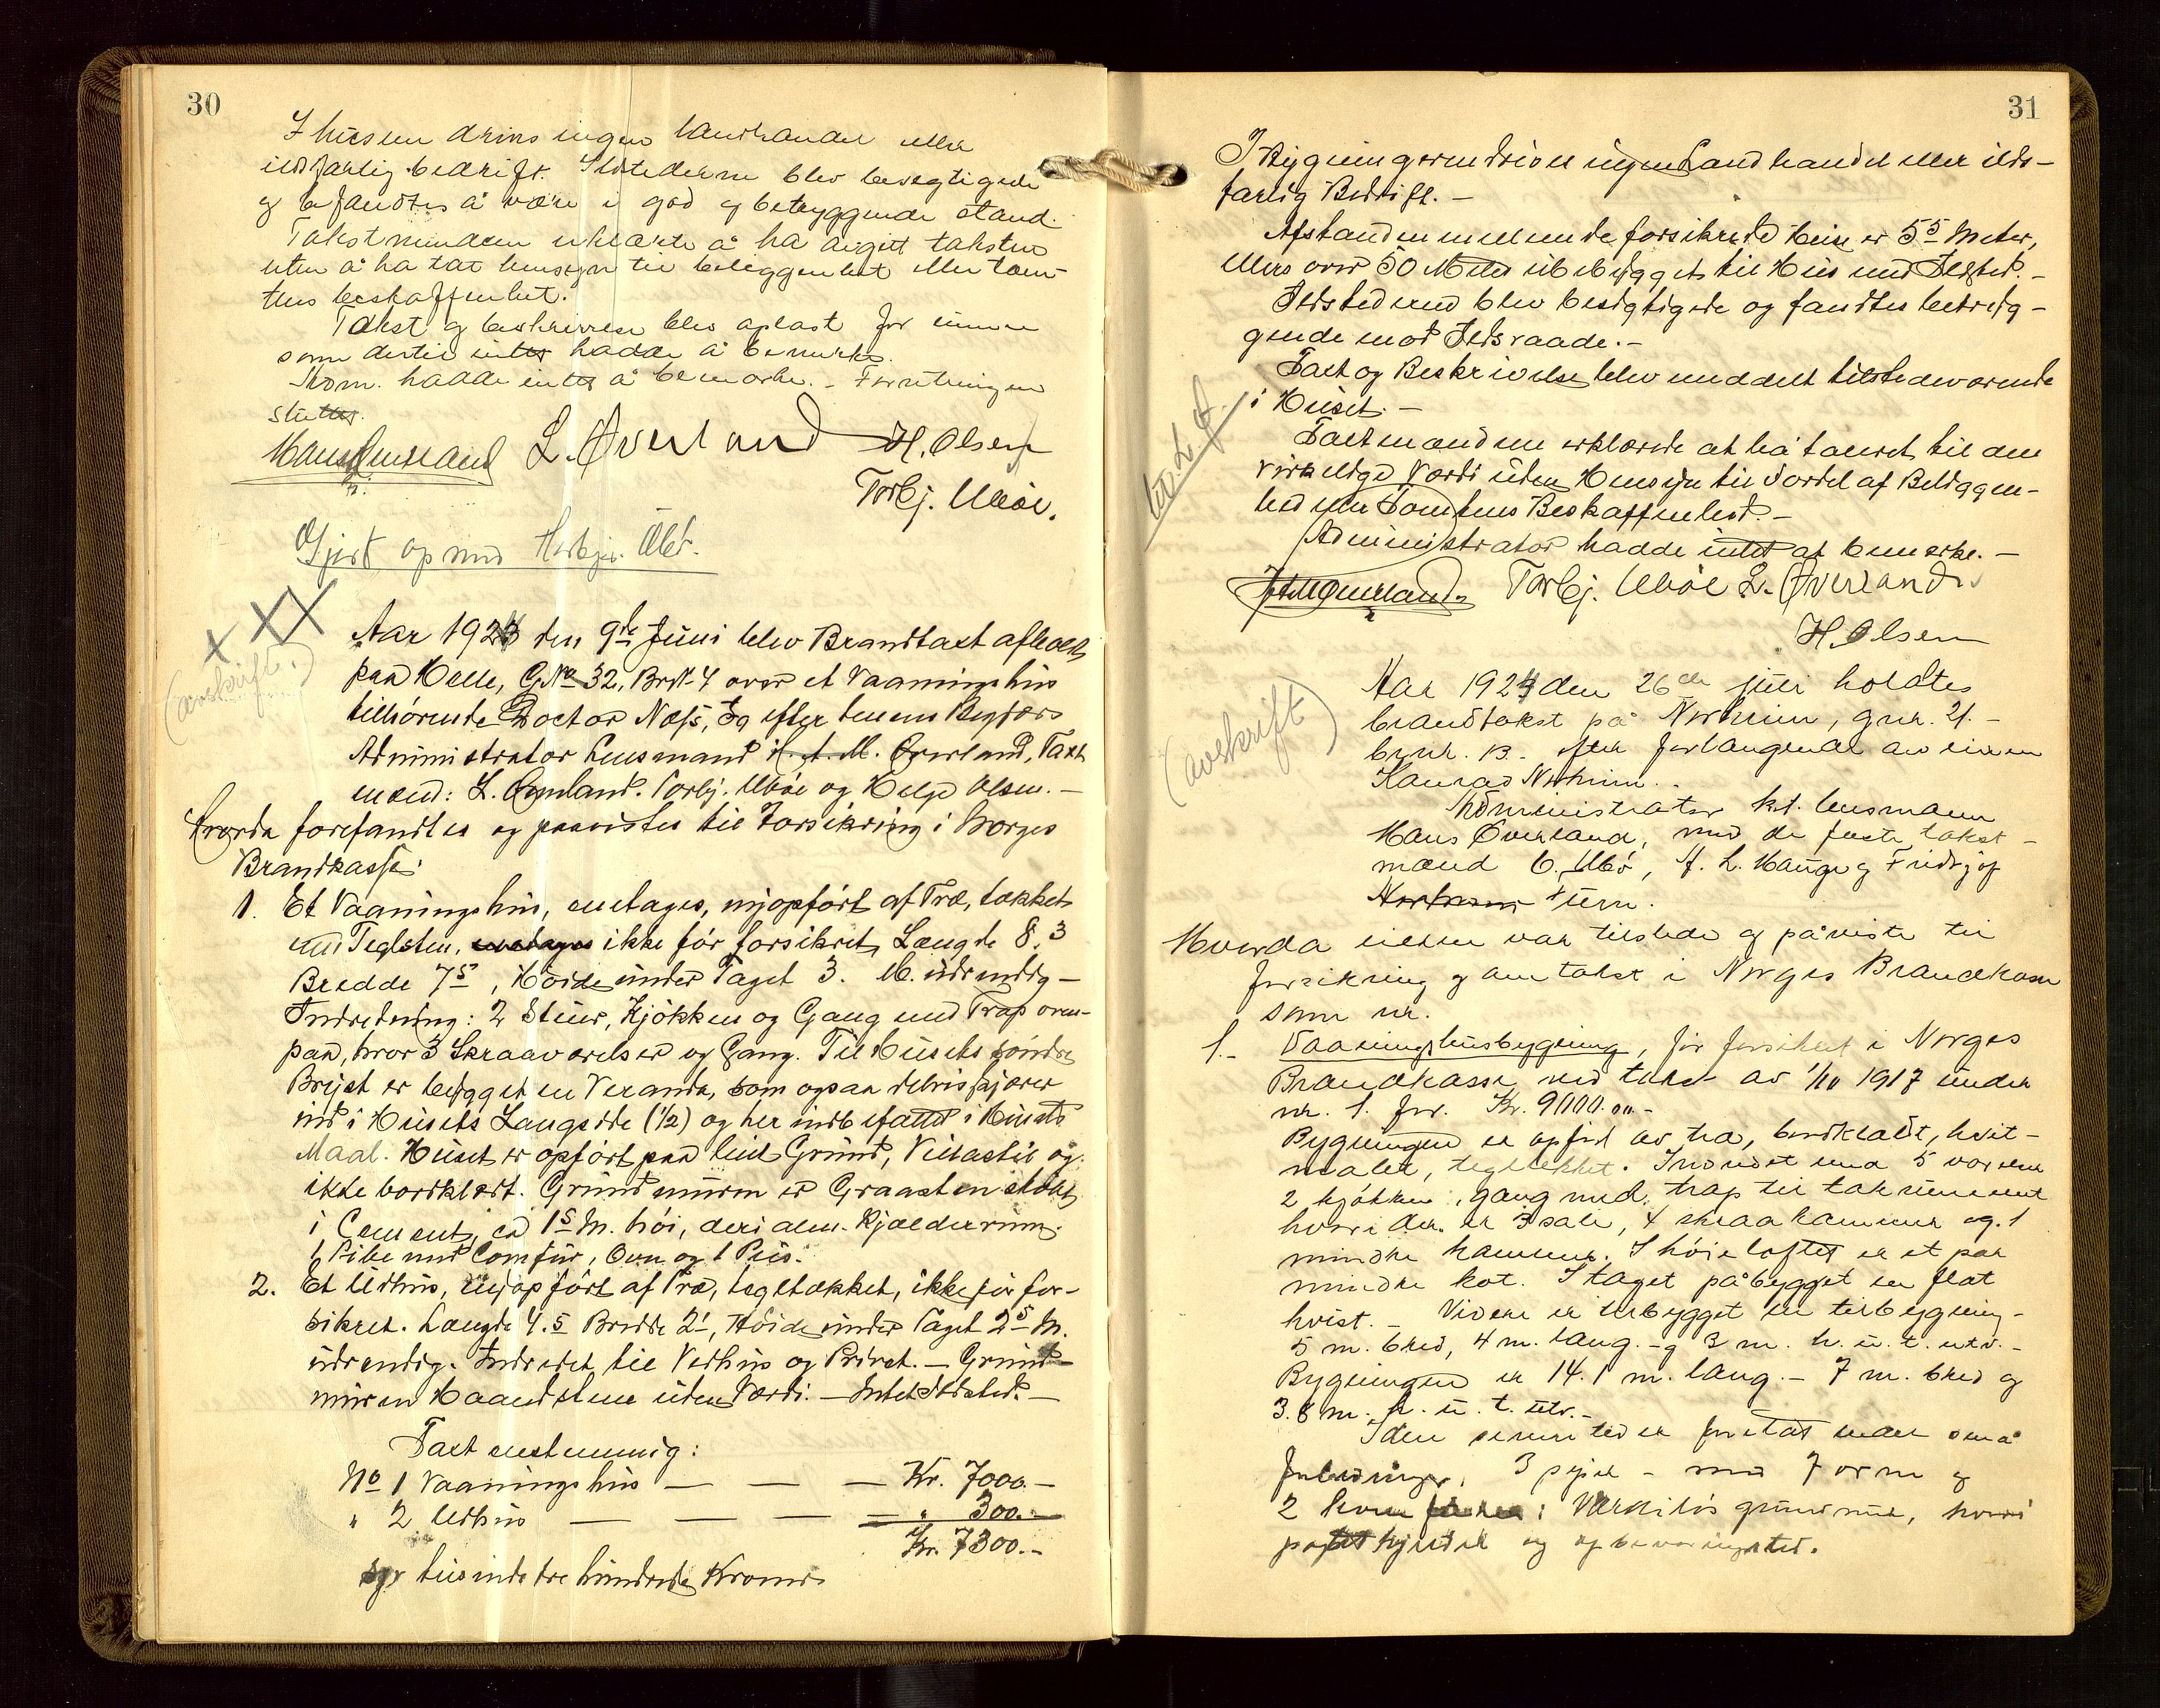 30
I husene drives ingen landhandel eller
ildsfarlig bedrift. Ildstederne blev besegtigede
og befandtes å være i god og betryggende stand.
Takstmændene erklærte å ha avgitt taksten
uten å ha tat hensyn til beliggenhet eller tom-
tens beskaffenhet.
Takst og beskrivelse blev oplæst for eieren
som dertil intet hadde å bemerke.
Adm. hadde intet å bemærke. - Forretningen
sluttet.
Hans Øverland L. Øverland H. Olsen
Torbj. Ulvøe.
Gjort op med Torbjr. Ulv.
x XX
(avskrift.)
Aar 1924 den 9de Juni blev Brandtaxt afholdt
paa Helle, GNo 32, BrN. 4 over et Vaaningshus
tilhørende Doctor Næss, Eg efter hennes Begjær
Administrator Lensmand H. A. M. Øverland, Taxt
mænd: L. Øverland. Torbj. Ulvøe og Helge Olsen. -
Hvorda forefandtes og paavistes til Forsikring i Norges
Brandkasse:
1. Et Vaaningshus, enetages, nyopført af Træ, tækket
med Teglsten, ikke før forsikret, Længde 8.3
Bredde 7.5, Høide under Taget 3. M. udvendig -
Indredning: 2 Stuer, Kjøkken og Gang med Trap oven-
paa, hvor 3 Skraaværelser og Gang. Til Husets søndre
Bryst er bygget en Veranda, som ogsaa delvis skjærer
ind i Husets Langside (1/2) og her indbefattet i Husets
Maal. Huset er opført paa leiet Grund, Villastil og
ikke bordklædt. Grundmuren er Graasten støbt
i Cement, ca 1.5 M. høi, deri alm. Kjælderrum.
1 Pibe med Comfur, Ovn og 1 Peis.
2. Et Udhus, nyopført af Træ, tegltækket, ikke før for-
sikret. Længde 4.5 Bredde 2.1, Høide under Taget 2.5 M.
udvendig. Indredet til Vedhus og Privet. - Grund-
muren Haandstene uden Værdi. - Intet Ildsted. -
Taxt enstemmig:
No 1 Vaaningshus — — — Kr. 7000.-
" 2 Udhus — — — — " 300.-
Kr. 7300.-
syv tusinde tre hundrede Kroner
31
I Bygningerne drives ingen Landhandel eller ilds-
farlig Bedrift. -
Afstanden mellem de forsikrede Huse er 5.5 Meter,
ellers over 50 Meter ubebygget til Hus med Ildsted. -
Ildstederne blev besigtigede og fandtes betryg-
gende mod Ildsvaade. -
Taxt og Beskrivelse blev meddelt tilstedeværende
i Huset. -
Taxtmændene erklærede at ha taxeret til den
virkelige Værdi uden Hensyn til Fordel af Beliggen-
hed eller Tomtens Beskaffenhed. -
Administrator hadde intet at bemerke. -
H.A.M. Øverland. Torbj. Ulvøe L. Øverland
H. Olsen
(avskrift)
Aar 1924 den 26de juli holdtes
brandtakst på Norheim, gnr. 21. -
brnr. 13. efter forlangende av eieren
Konrad Norheim.
Administrator kst. lensmann
Hans Øverland, med de faste takst-
mænd O. Ulvø, A. L. Hauge og Fridtjof
Norheim Tuen.
Hvorda eieren var tilstede og påviste til
forsikring og om takst i Norges Brandkasse
som nr.
1.- Vaaningshusbygning, før forsikret i Norges
Brandkasse ved takst av 1/10 1917 under
nr. 1. for. Kr. 9000.00.-
Bygningen er opført av træ, bordklædt, hvit-
malet, tegltækket. Indredet med 5 værelser
2 kjøkken, gang med trap til takrummet
hvori der er 3 sale, 4 skraakammer og. 1
mindre kammer. I høieloftet er et par
mindre kot. I taget på bygget en flat
hvist. - Videre er tilbygget en tilbygning -
5 m. bred, 4 m. lang. - og 3 m. h. u. t. utv. -
Bygningen er 14.1 m. lang. - 7 m. bred og
3.8 m. h. u. t. utv. -
I den senere tid er foretat endel små
forbedringer. 3 piper - med 7 ovne og
2 komfurer i Værkiløs grundmur, hvori
pottekjelder og opbevaringsted.